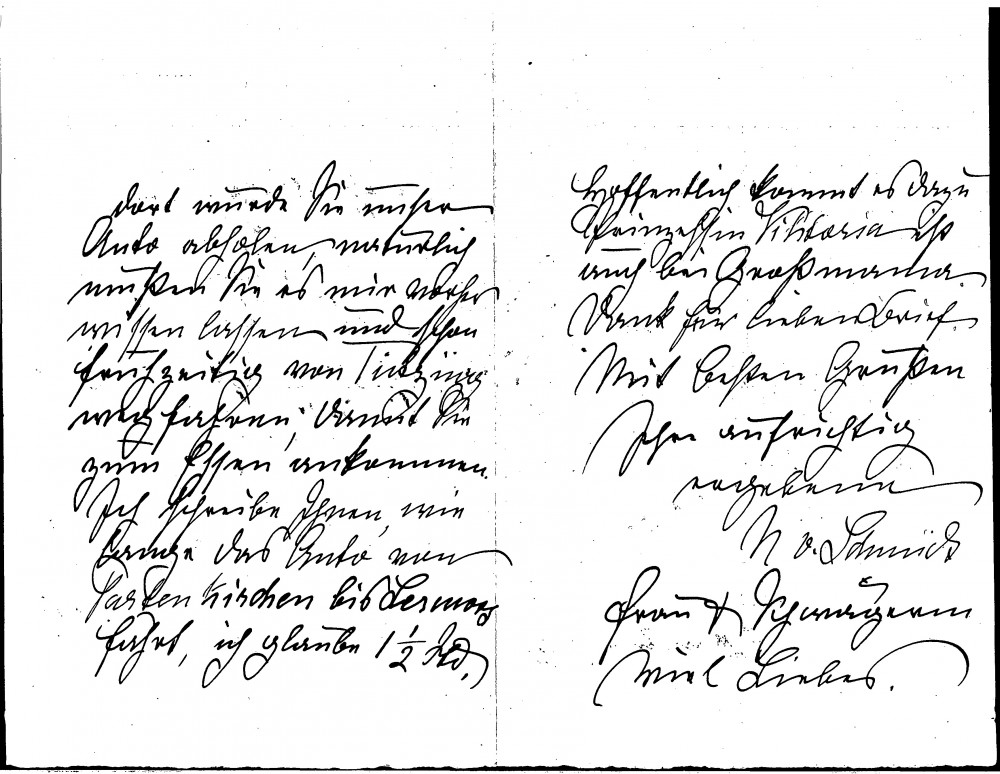 dort würde Sie unser
Auto abholen, natürlich
müßten Sie es mir vorher
wissen lassen und schon
frühzeitig von Tutzing
weg fahren, damit Sie
zum Essen ankommen.
Ich schreibe Ihnen, wie
lange das Auto von
Partenkirchen bis Lermoos
fährt, ich glaube 1 1/2 Std.
Hoffentlich kommt es dazu
Prinzessin Viktoria ist
auch bei Großmama.
Dank für lieben Brief.
Mit besten Grüßen
Ihre aufrichtig
ergebene
N v. Schmidt
Frau & Schwägerin
viel Liebes.